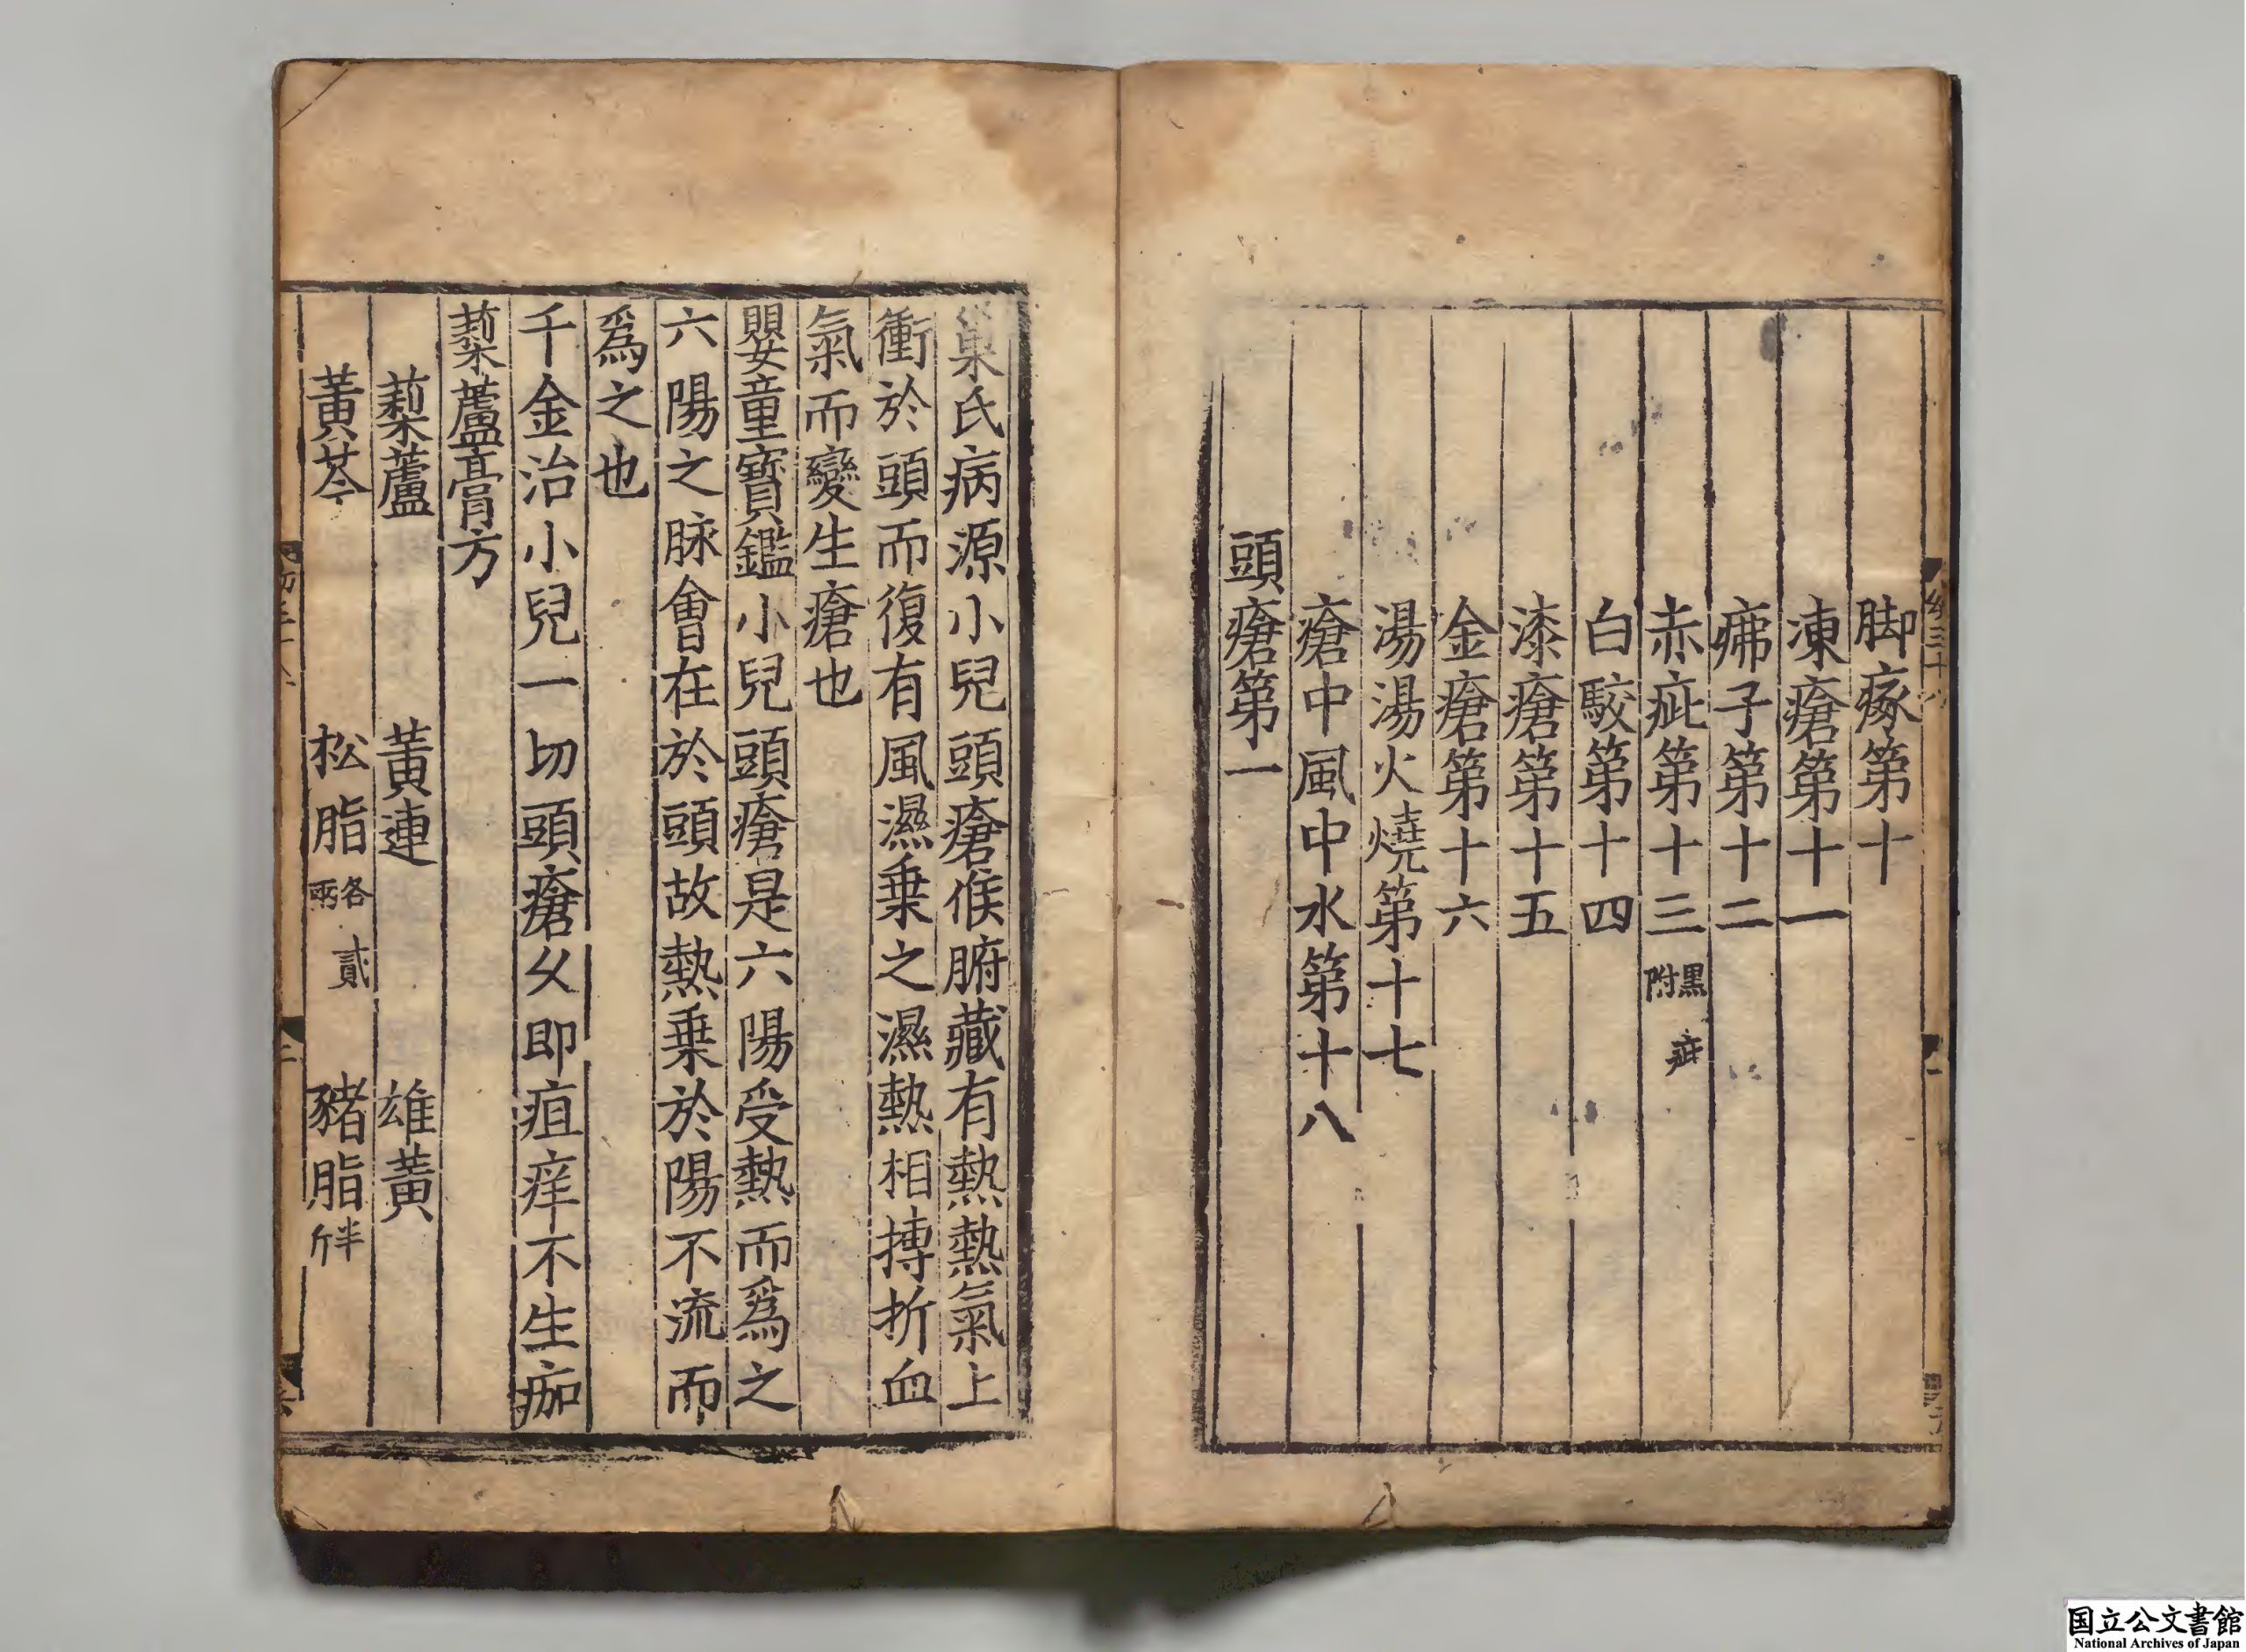 脚瘃第十
凍瘡第十一
疿子第十二
赤疵第十三 黑疵附
白駮第十四
漆瘡第十五
金瘡第十六
湯湯火燒第十七
瘡中風中水第十八
頭瘡第一
巢氏病源小兒頭瘡候腑藏有熱熱氣上
衝於頭而復有風濕乗之濕熱相搏折血
氣而變生瘡也
嬰童寶鑑小兒頭瘡是六陽受熱而爲之
六陽之脉會在於頭故熱乗於陽不流而
爲之也
千金治小兒一切頭瘡乆即疽痒不生痂
蔾蘆膏方
蔾蘆 黃連 雄黃
黃芩 松脂各貳兩 豬脂半斤
国立公文書館
National Archives of Japan